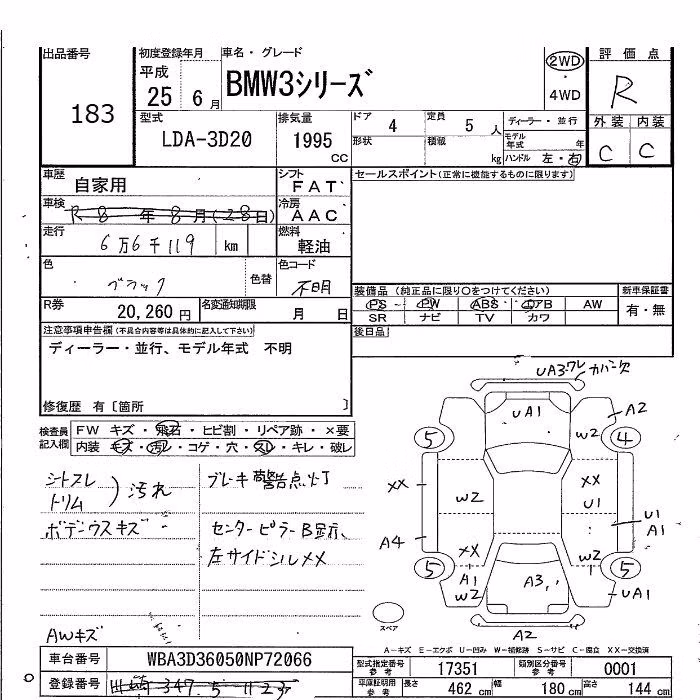 出品番号 初度登録年月 車名・グレード 評価点
183 平成 25 6月 BMW3シリーズ 2WD・4WD R
型式 排気量 ドア 4 定員 5人 ディーラー・並行 外装 内装
LDA-3D20 1995cc 形状 積載 kg モデル年式 年 ハンドル 左・右 C C
車歴 自家用 シフト FAT セールスポイント(正常に機能するものに限ります)
車検 R8年8月(28日) 冷房 AAC
走行 6万6千119 km 燃料 軽油
色 ブラック 色替 色コード 不明
装備品 (純正品に限り○をつけてください) 新車保証書
PS PW ABS エアB AW 有・無
R券 20,260円 名変通知期限 月 日 SR ナビ TV カワ
注意事項申告欄(不具合内容等は具体的に記入して下さい) 後日品
ディーラー・並行、モデル年式 不明
修復歴 有〔箇所 〕
検査員記入欄 FW キズ・飛石・ヒビ割・リペア跡・×要
内装 キズ・汚レ・コゲ・穴・スレ・キレ・破レ
シートスレ
トリム 汚れ
ブレーキ警告点灯
ボデーウスキズ
センターピラーB显示、
左サイドシルXX
AWキズ
UA3ワレ カバー欠
UA1
A2
5 W2 4
XX W2 XX
U1
U1
A1
A4 XX W2
5 A1 5
W2 A3 UA1
スペア A2
A-キズ E-エクボ U-凹み W-補修跡 S-サビ C-腐食 XX-交換済
車台番号 WBA3D36050NP72066 型式指定番号 参考 17351 類別区分番号 参考 0001
登録番号 車庫証明用 参考 長さ 462cm 幅 180cm 高さ 144cm